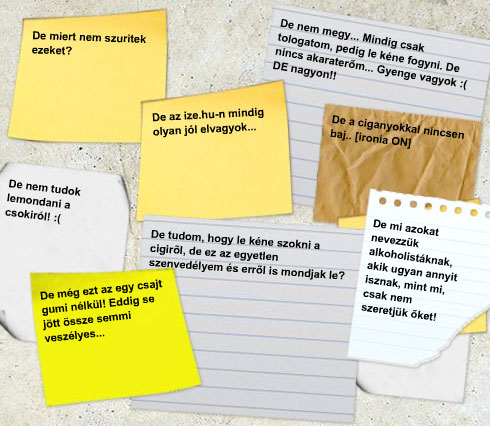 De miert nem szuritek
ezeket?
De nem megy... Mindig csak
tologatom, pedig le kéne fogyni. De
nincs akaraterőm... Gyenge vagyok :(
DE nagyon!!
De az ize.hu-n mindig
olyan jól elvagyok...
De a ciganyokkal nincsen
baj.. [ironia ON]
De nem tudok
lemondani a
csokiról! :(
De tudom, hogy le kéne szokni a
cigiről, de ez az egyetlen
szenvedélyem és erről is mondjak le?
De mi azokat
nevezzük
alkoholistáknak,
akik ugyan annyit
isznak, mint mi,
csak nem
szeretjük őket!
De még ezt az egy csajt
gumi nélkül! Eddig se
jött össze semmi
veszélyes...